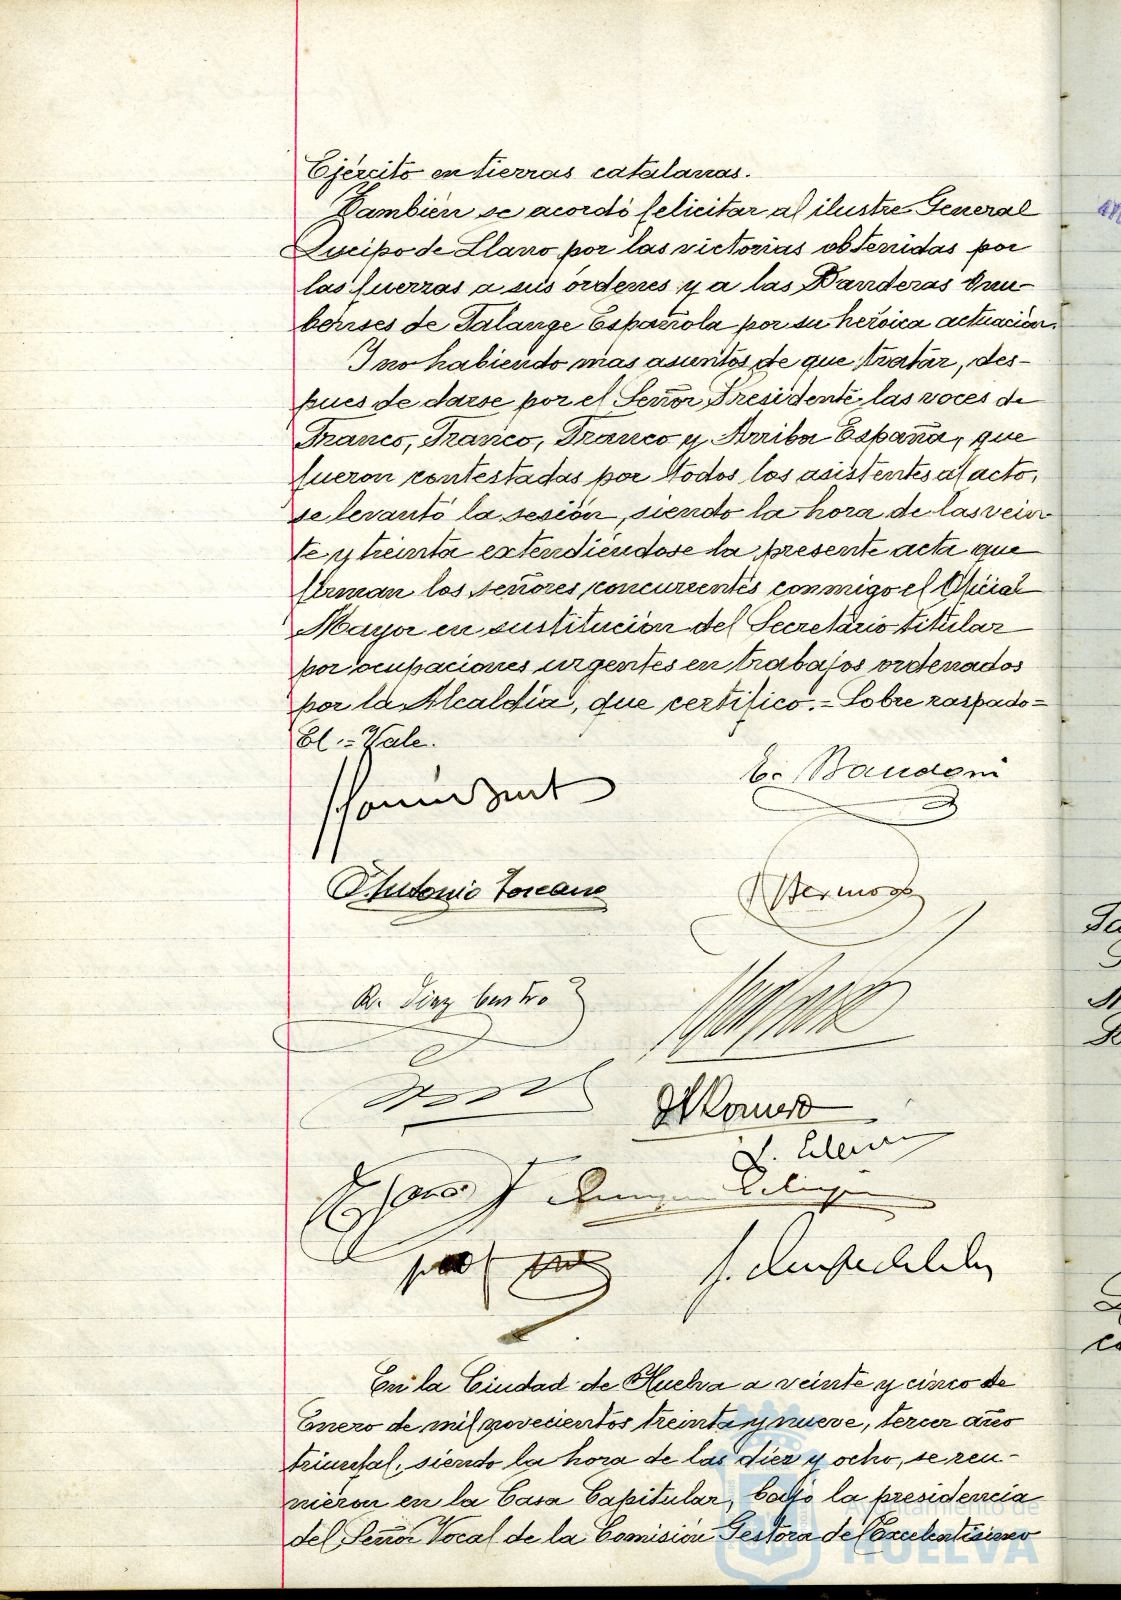 Ejército en tierras catalanas.
Tambien se acordó felicitar al ilustre General
Queipo de Llano por las victorias obtenidas por
las fuerzas a sus órdenes y a las Banderas Onu-
benses de Falange Española por su heróica actuación.
Y no habiendo mas asuntos de que tratar, des-
pues de darse por el Señor Presidente las voces de
Franco, Franco, Franco y Arriba España, que
fueron contestadas por todos los asistentes al acto,
se levantó la sesión, siendo la hora de las vein
te y treinta extendiéndose la presente acta que
firman los señores concurrentes conmigo el Oficial
Mayor en sustitución del Secretario titular
por ocupaciones urgentes en trabajos ordenados
por la Alcaldía, que certifico.= Sobre raspado=
El.= Vale.
E. Baudoni
Antonio Toscano
Hermoso
R. Diaz Castro
Romero
En la Ciudad de Huelva a veinte y cinco de
Enero de mil novecientos treinta y nueve, tercer año
triunfal, siendo la hora de las diez y ocho, se reu-
nieron en la Casa Capitular, bajo la presidencia
del Señor Vocal de la Comisión Gestora del Excelentísimo
Ayuntamiento de
HUELVA